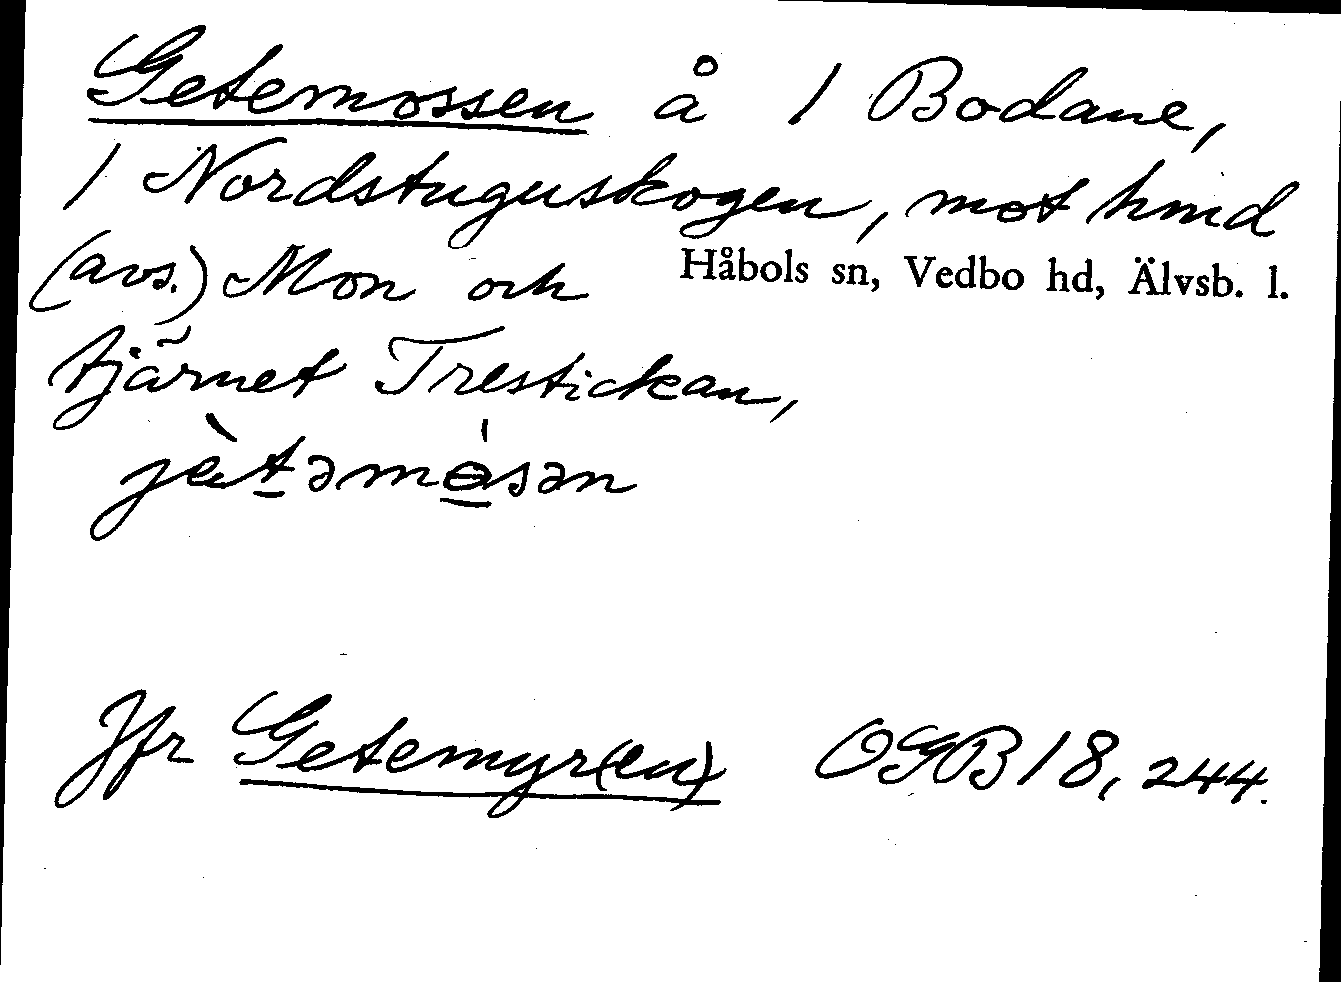 Getemossen å 1 Bodane,
1 Nordstuguskogen, mot hmd
(avs.) Mon och
Håbols sn, Vedbo hd, Älvsb. l.
tjärnet Trestickan,
jètəmɵ́sən
Jfr Getemyr(en) OGB 18, 244.